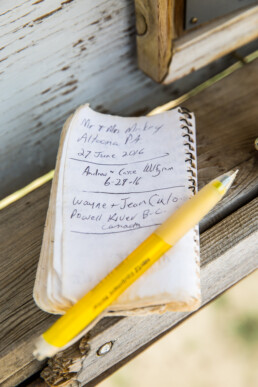 Mr & Mrs
Altoona PA
27 June 2016
Andrew + Cora
6-28-16
Wayne + Jean Culo
Powell River B-C
Canada